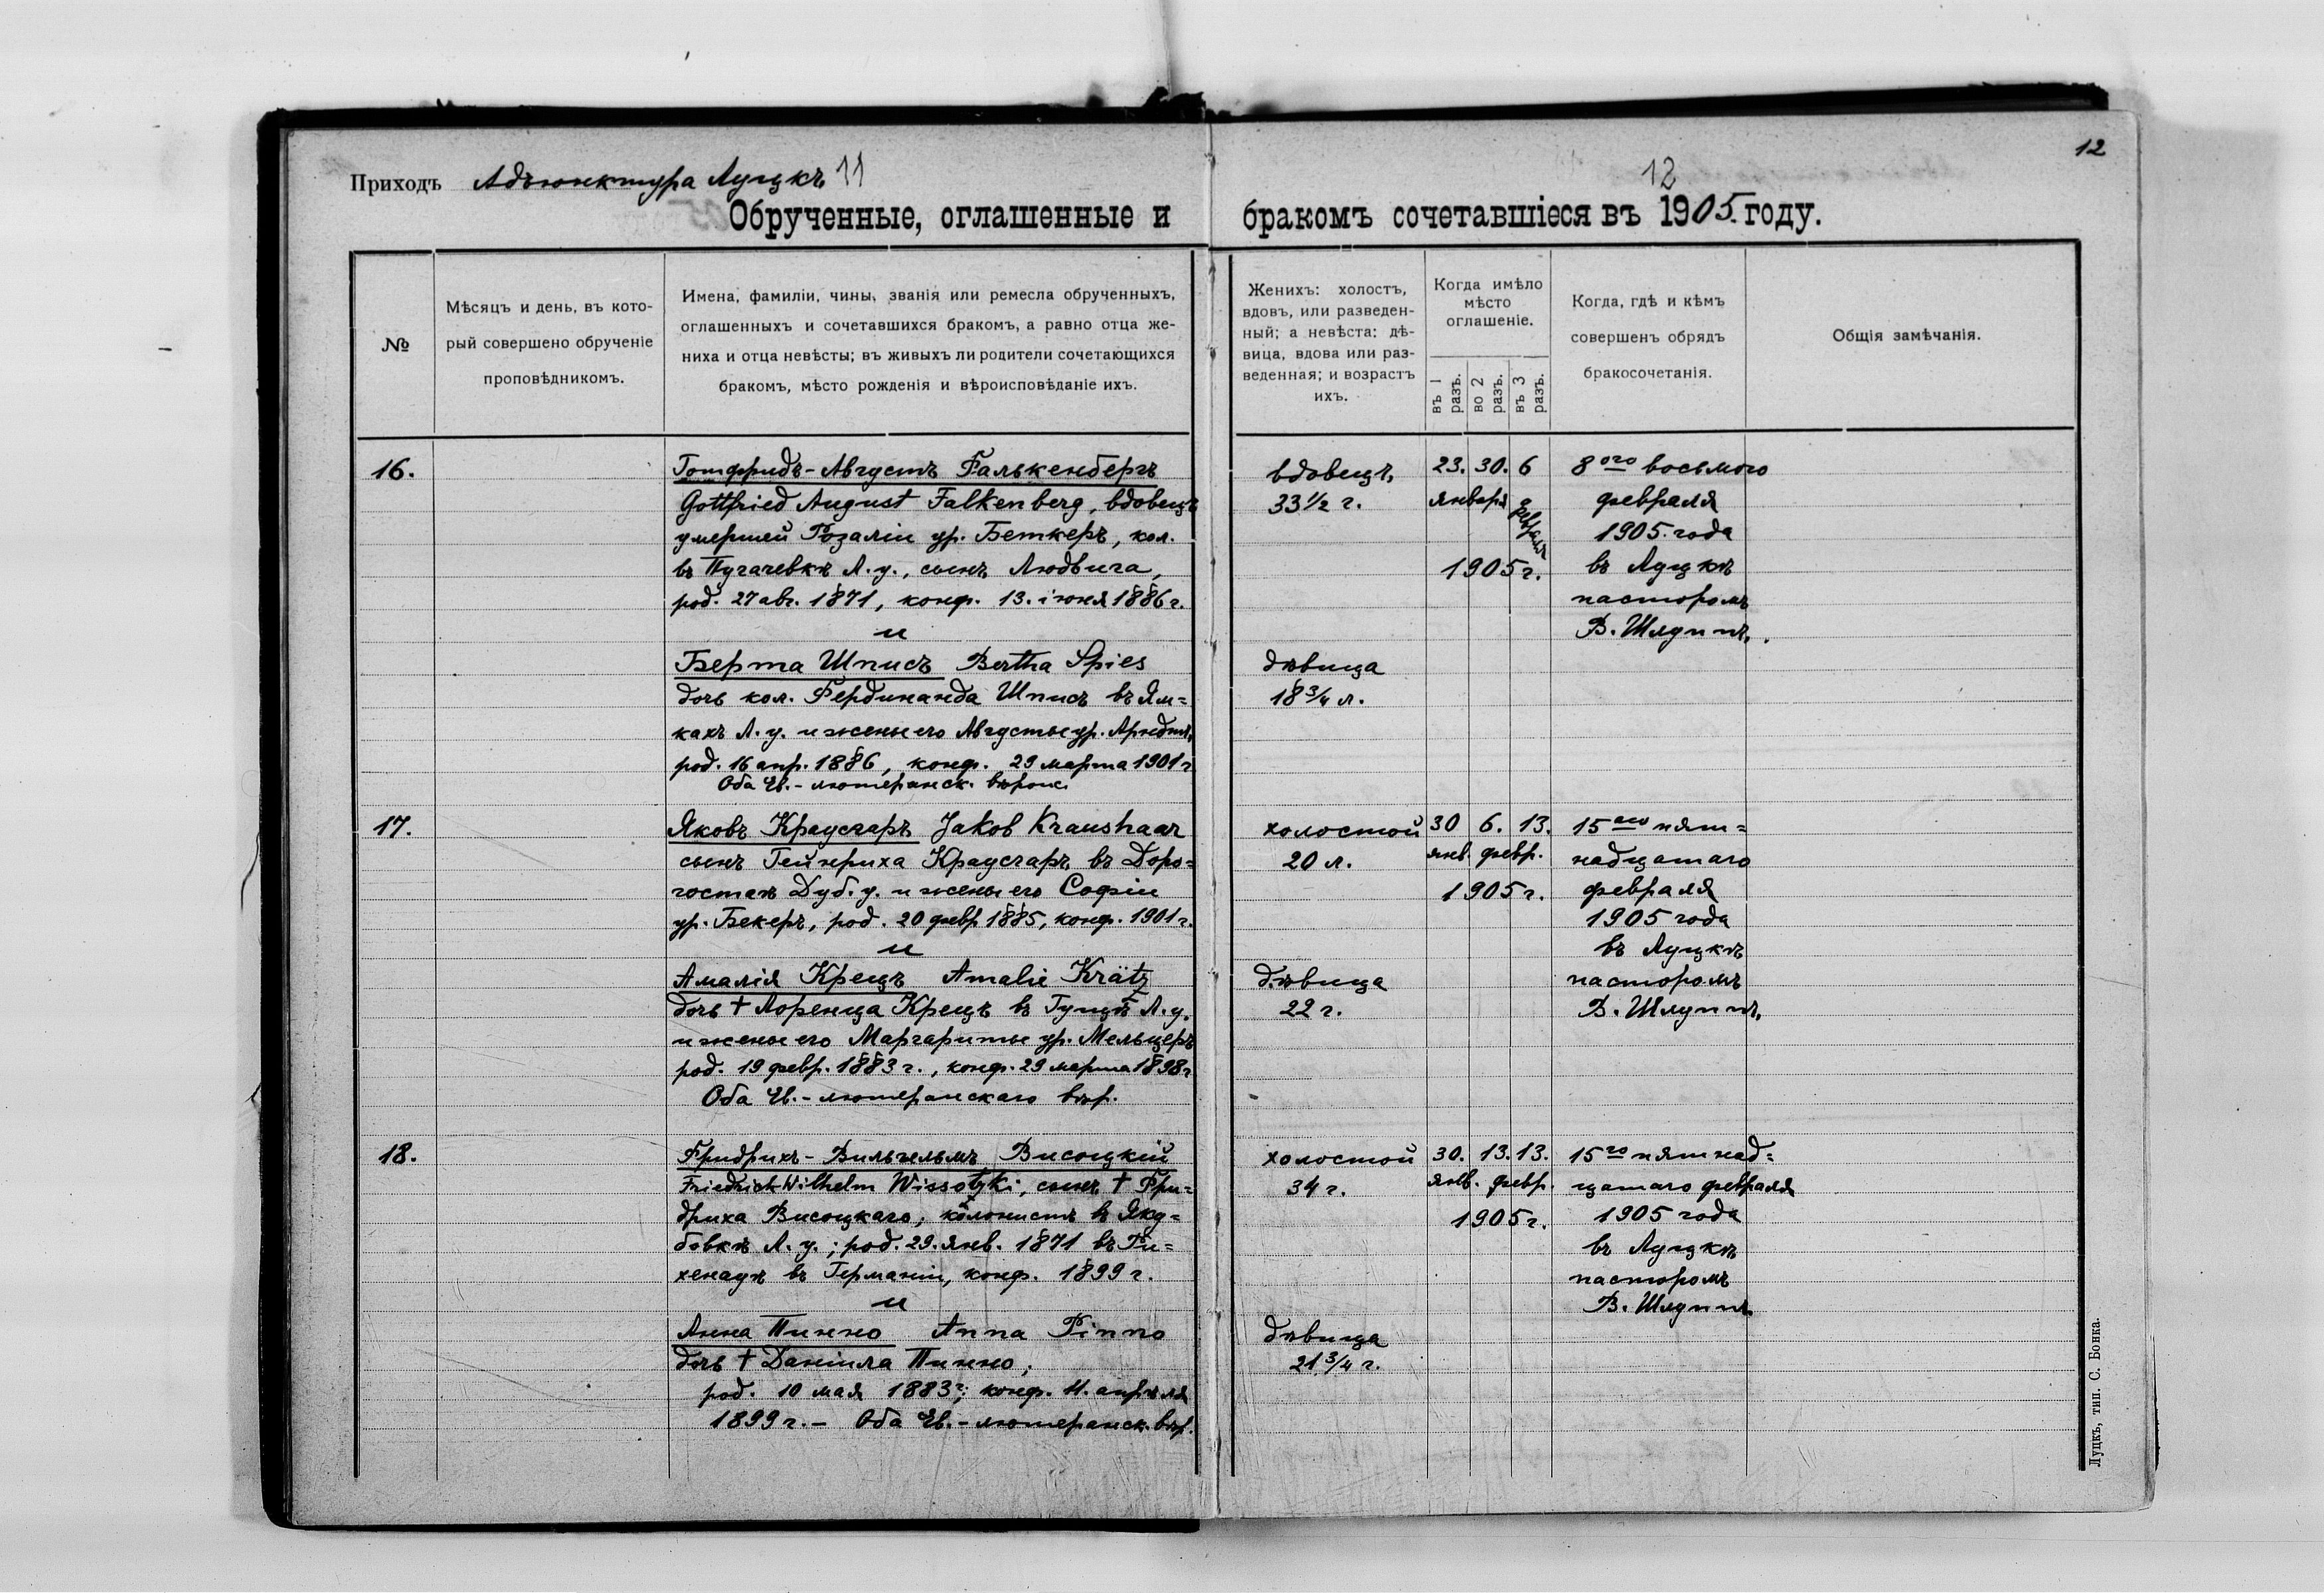 12
Приходъ Адъюнктура Луцкъ 11
12
Обрученные, оглашенные и бракомъ сочетавшіеся въ 1905. году.
№
Мѣсяцъ и день, въ кото-
рый совершено обрученіе
проповѣдникомъ.
Имена, фамиліи, чины, званія или ремесла обрученныхъ,
оглашенныхъ и сочетавшихся бракомъ, а равно отца же-
ниха и отца невѣсты; въ живыхъ ли родители сочетающихся
бракомъ, мѣсто рожденія и вѣроисповѣданіе ихъ.
Женихъ: холостъ,
вдовъ, или разведен-
ный; а невѣста: дѣ-
вица, вдова или раз-
веденная; и возрастъ
ихъ.
Когда имѣло
мѣсто
оглашеніе.
въ 1 разъ.
во 2 разъ.
въ 3 разъ.
Когда, гдѣ и кѣмъ
совершенъ обрядъ
бракосочетанія.
Общія замѣчанія.
16.
Готфридъ-Августъ Фалькенбергъ
Gottfried August Falkenberg, вдовецъ
умершей Розаліи ур. Беткеръ, кол.
въ Пугачевкѣ Л. у., сынъ Людвига,
род. 27 авг. 1871, конф. 13. іюня 1886 г.
и
Берта Шписъ Bertha Spies
дочь кол. Фердинанда Шписъ въ Ям=
кахъ Л. у. и жены его Августы ур. Арндтъ,
род. 16 апр. 1886, конф. 29 марта 1901 г
Оба Ев.-лютеранск. вѣроис.
вдовецъ,
33 1/2 г.
дѣвица
18 3/4 л.
23. 30. 6
января февраля
1905 г.
8ого восьмого
февраля
1905. года
въ Луцкѣ
пасторомъ
В. Шлуппъ.
17.
Яковъ Краусгаръ Jakob Kraushaar
сынъ Гейнриха Краусгаръ въ Доро=
гостаѣ Дуб. у. и жены его Софіи
ур. Бекеръ, род. 20 февр 1885, конф. 1901 г.
и
Амалія Крецъ Amalie Krätz
дочь † Лоренца Крецъ въ Гущѣ Л. у.
и жены его Маргариты ур. Мельцеръ
род. 19 февр. 1883 г., конф. 29 марта 1898 г
Оба Ев.-лютеранскаго вѣр.
холостой
20 л.
дѣвица
22 г.
30 6. 13.
янв. февр.
1905 г.
15аго пят=
надцатаго
февраля
1905 года
въ Луцкѣ
пасторомъ
В. Шлуппъ.
18.
Фридрихъ-Вильгельмъ Висоцкій
Friedrich Wilhelm Wissotzki, сынъ † Фри=
дриха Висоцкаго, колонистъ въ Яку=
бовкѣ Л. у.; род. 29. янв. 1871 въ Ри=
хенауѣ въ Германіи, конф. 1899 г.
и
Анна Пинно Anna Pinno
дочь † Даніила Пинно,
род. 10 мая 1883 г; конф. 11. апрѣля
1899 г. - Оба Ев.-лютеранск. вѣр.
холостой
34 г.
дѣвица
21 3/4 г.
30. 13. 13.
янв. февр.
1905 г.
15го пятнад=
цатаго февраля
1905 года
въ Луцкѣ
пасторомъ
В. Шлуппъ
Луцкъ, тип. С. Бонка.